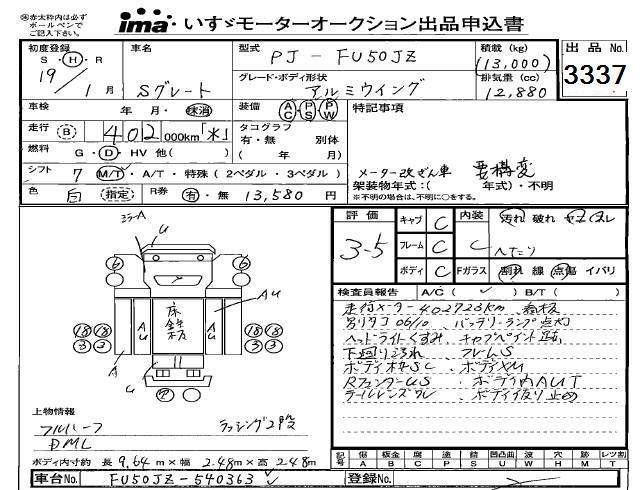 ㊟赤太枠内は必ず
ボールペンで
ご記入下さい。
ima いすゞモーターオークション出品申込書
初度登録 車名 型式 PJ-FU50JZ 積載(kg) (13,000) 出品No.
S・H・R
19/1月 Sグレート グレード・ボディ形状 アルミウイング 排気量(cc) 12,880 3337
車検 年 月・抹消 装備 AC・PS・PW 特記事項
走行 B 402000km「水」 タコグラフ
有・無 別体
燃料 G・D・HV 他( ) ( 年 月)
シフト 7 M/T・A/T・特殊(2ペダル・3ペダル) メーター改ざん車 要構変
架装物年式:( 年式)・不明
色 白 指定 R券 有・無 13,580円 ※不明の場合は、不明に○をする。
評価 3-5 キャブ C 内装 C 汚れ 破れ ヤニ ヌレ
フレーム C ヘたり
ボディ C Fガラス 割れ 線 点傷 イバリ
ミラーA
U
6 6
床鉄板
Au Au Au
18 18 18 18
3 3 3 3
A U
検査員報告 A/C( ✓ ) B/T( )
走行メーター402723km 看板
バッテリーランプ点灯
ヘッドライトくすみ キャブペイント
下廻り フレームS
ボディ SC ボディXU
RフェンダーUS ボディ内AUT
テールレンズワレ
上物情報
フルハーフ ラッシング2段
DML
ボディ内寸約 長 9.64m×幅 2.48m×高 2.48m
記号 傷 板金 腐 塗 錆 凹凸曲 波 穴 跡 レツ割
A B C P S U W H M T
車台No. FU50JZ-540363 登録No.